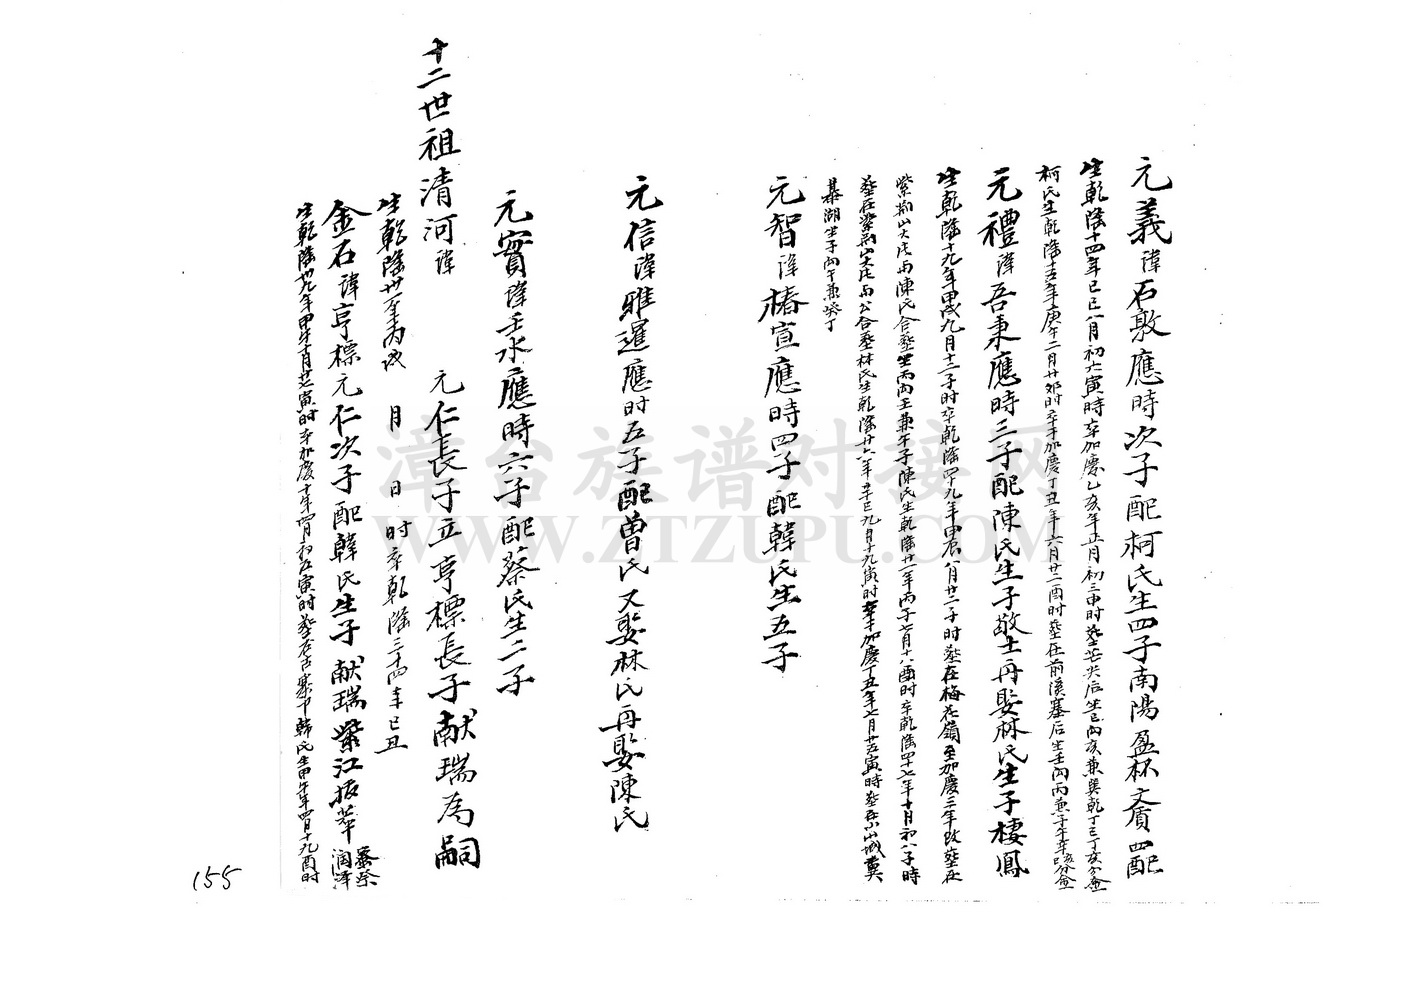 元義諱石敦應時次子配柯氏生四子南陽盈杯文賡四配
生乾隆十四年己巳八月初六寅時卒加慶乙亥年正月初三申时塟芒尖后坐巳丙亥兼巽乾丁巳丁亥分金
柯氏生乾隆十五年庚午二月廿卯时卒于加慶丁丑年六月廿二酉时塟在前溪墓后坐壬丙兼子午辛亥分金
元禮諱吾秉應時三子配陳氏生子敬士再娶林氏生子棲鳳
生乾隆十九年甲戌九月十三子时卒乾隆四十九年甲辰八月廿二子时塟在梅花嶺至加慶三年改塟在
紫荊山大戌內陳氏合塟坐丙向壬兼午子陳氏生乾隆廿一年丙子七月十八酉时卒乾隆四十七年十月初八子時
塟在紫荊山大戌內公合塟林氏生乾隆廿六年辛巳九月十九寅时卒于加慶丁丑年七月廿五寅時塟在山城奠
棊湖坐子向午兼癸丁
元智諱椿宣應時四子配韓氏生五子
元信諱雅暹應时五子配曾氏又娶林氏再娶陳氏
元實諱壬水應時六子配蔡氏生二子
十二世祖清河諱 元仁長子立亨標長子献瑞為嗣
生乾隆卅一年丙戌 月 日 时卒乾隆三十四年己丑
金石諱亨標元仁次子配韓氏生子献瑞紫江振華 潤澤
生乾隆卅九年甲午十月廿二寅时卒加慶十年四月初五寅时塟在古寨下韓氏生甲午年四月十九酉时
155
漳台族谱对接网
WWW.ZTZUPU.COM